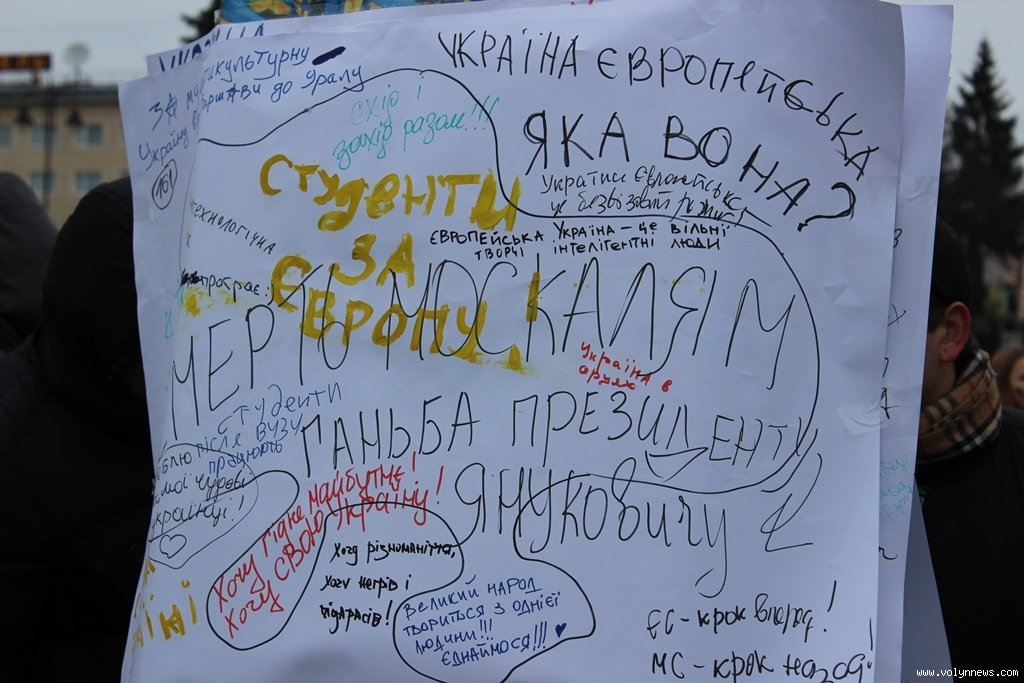 УКРАЇНА ЄВРОПЕЙСЬКА
ЯКА ВОНА?
ЗА мультикультурну
Україну
до Уралу
схід і
захід разом!!!
СТУДЕНТИ
ЗА
ЄВРОПУ
Україна Європейська
це безвізовий режим!
ЄВРОПЕЙСЬКА Україна – це вільні
творчі інтелігентні люди
технологічна
і
прогрес.
СМЕРТЬ МОСКАЛЯМ
Україна в
ГАНЬБА ПРЕЗИДЕНТУ
ЯНУКОВИЧУ
студенти
після ВУЗУ
працюють
люблю
мої чудові
українці!
Хочу гідне майбутнє!
Хочу СВОЮ Україну!
Хочу різноманіття,
Хочу негрів і
підарасів!
Великий народ
твориться з однієї
людини!!!
Єднаймося!!!
ЄС - крок вперед!
МС - крок назад!
www.volynnews.com